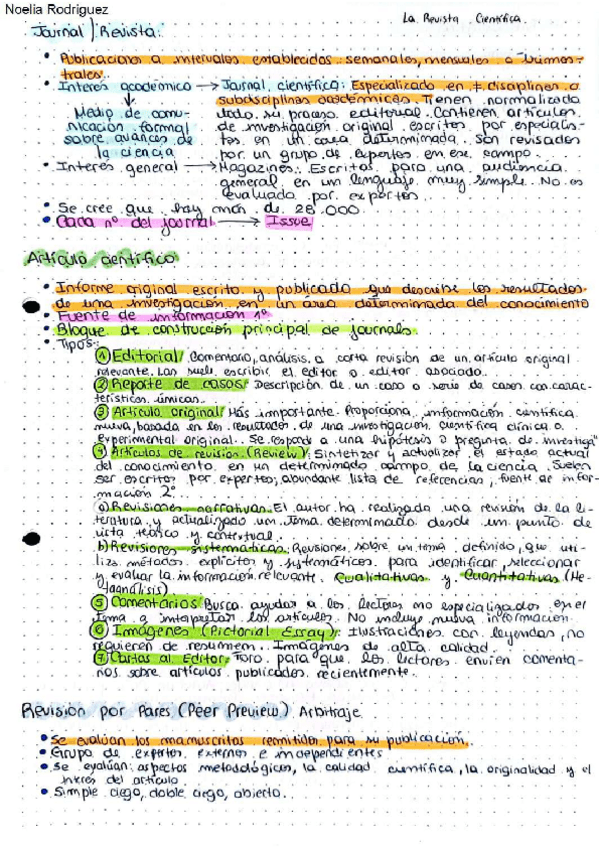 Noelia Rodríguez
La Revista Científica.
Journal / Revista:
• Publicaciones a intervalos establecidos: semanales, mensuales o bimes-
trales.
• Interés académico → Journal científico: Especializado en ≠ disciplinas o
subdisciplinas académicas. Tienen normalizado
Medio de comu- su proceso editorial. Contienen artículos
nicación formal de investigación original escritos por especialis-
sobre avances de tas en un área determinada. Son revisados
la ciencia por un grupo de expertos en ese campo.
• Interés general → Magazines. Escritos para una audiencia
general en un lenguaje muy simple. No es
evaluado por expertos.
• Se cree que hay más de 28.000
• Cada nº del journal → Issue
Artículo científico
• Informe original escrito y publicado que describe los resultados
de una investigación en un área determinada del conocimiento
• Fuente de información 1º
• Bloque de construcción principal de journals.
• Tipos:
① Editorial: Comentario, análisis o corta revisión de un artículo original
relevante. Las suele escribir el editor o editor asociado.
② Reporte de casos: Descripción de un caso o serie de casos con carac-
terísticas únicas.
③ Artículo original: Más importante. Proporciona información científica
nueva, basada en los resultados de una investigación científica clínica o
experimental original. Se responde a una hipótesis o pregunta de investigaⁿ
④ Artículos de revisión (Review): Sintetizar y actualizar el estado actual
del conocimiento en un determinado campo de la ciencia. Suelen
ser escritos por expertos; abundante lista de referencias, fuente de infor-
mación 2º
a) Revisiones narrativas: El autor ha realizado una revisión de la li-
teratura y actualizado un tema determinado desde un punto de
vista teórico y contextual.
b) Revisiones sistemáticas: Revisiones sobre un tema definido, que uti-
liza métodos explícitos y sistemáticos para identificar, seleccionar
y evaluar la información relevante. Cualitativas y Cuantitativas (Me-
taanálisis)
⑤ Comentarios: Busca ayudar a los lectores no especializados en el
tema a interpretar los artículos. No incluye nueva información.
⑥ Imágenes (Pictorial Essay): Ilustraciones con leyendas, no
requieren de resumen. Imágenes de alta calidad.
⑦ Cartas al Editor: Foro para que los lectores envíen comenta-
rios sobre artículos publicados recientemente.
Revisión por Pares (Péer Preview) Arbitraje
• Se evalúan los manuscritos remitidos para su publicación.
• Grupo de expertos externos e independientes
• Se evalúan: aspectos metodológicos, la calidad científica, la originalidad y el
interés del artículo
• Simple ciego, doble ciego, abierto.